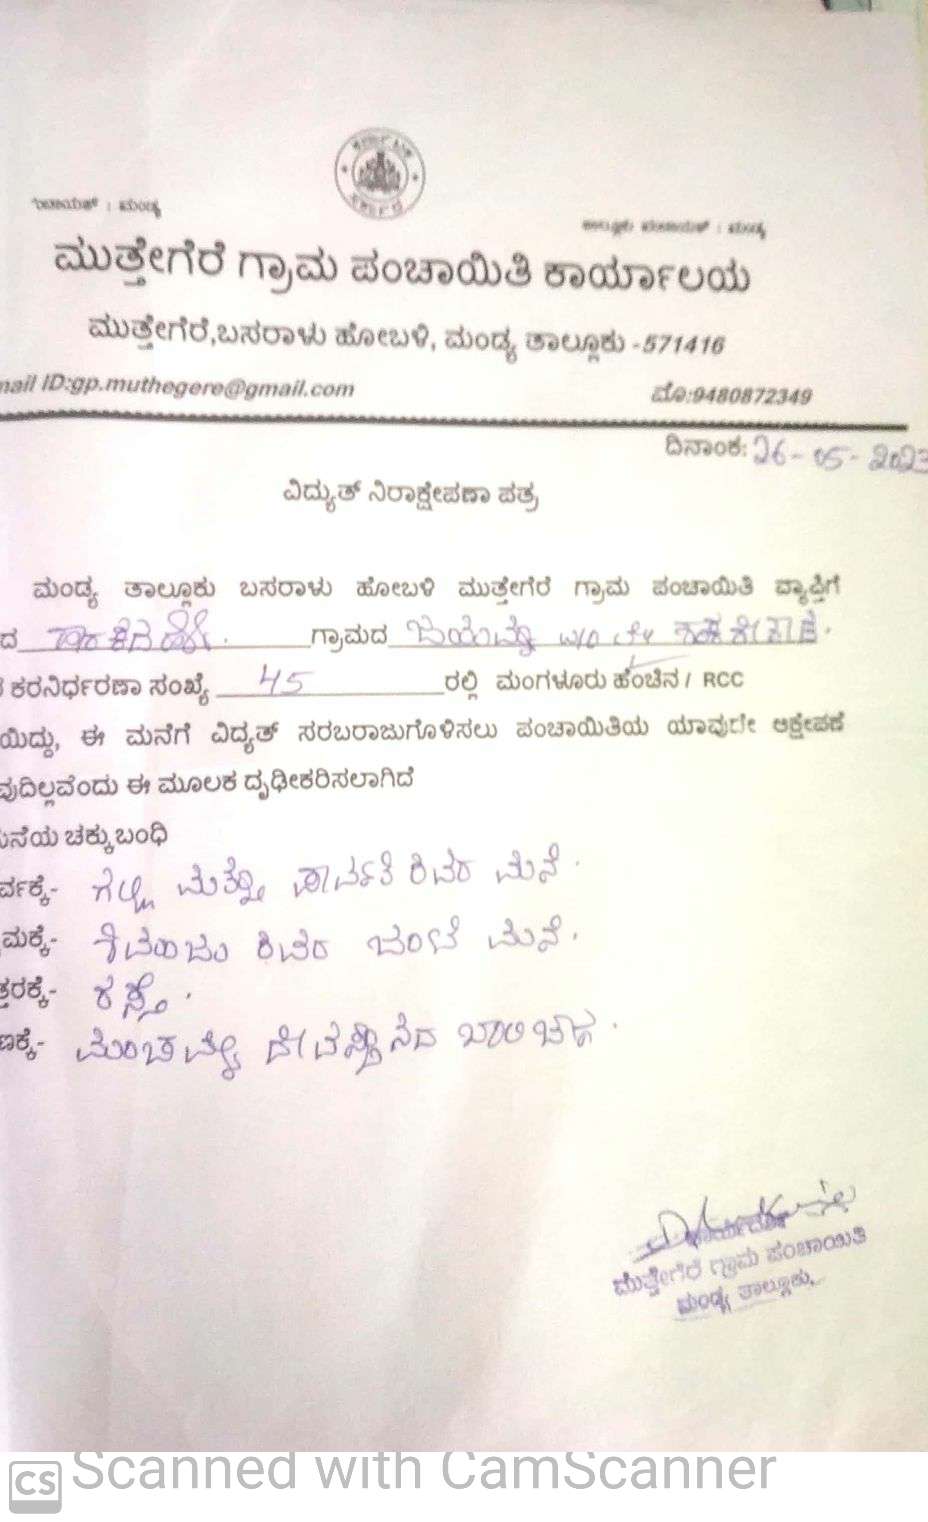 ಮುತ್ತೇಗೆರೆ ಗ್ರಾಮ ಪಂಚಾಯಿತಿ ಕಾರ್ಯಾಲಯ
ಮುತ್ತೇಗೆರೆ,ಬಸರಾಳು ಹೋಬಳಿ, ಮಂಡ್ಯ ತಾಲ್ಲೂಕು -571416
mail ID:gp.muthegere@gmail.com ಮೊ:9480872349
ದಿನಾಂಕ: 26-05-2023
ವಿದ್ಯುತ್ ನಿರಾಕ್ಷೇಪಣಾ ಪತ್ರ
ಮಂಡ್ಯ ತಾಲ್ಲೂಕು ಬಸರಾಳು ಹೋಬಳಿ ಮುತ್ತೇಗೆರೆ ಗ್ರಾಮ ಪಂಚಾಯಿತಿ ವ್ಯಾಪ್ತಿಗೆ
ದ ಗ್ರಾಮದ ಜಯಮ್ಮ w/o ಲೇ
ಕರನಿರ್ಧರಣಾ ಸಂಖ್ಯೆ 45 ರಲ್ಲಿ ಮಂಗಳೂರು ಹೆಂಚಿನ / RCC
ಯಿದ್ದು, ಈ ಮನೆಗೆ ವಿದ್ಯತ್ ಸರಬರಾಜುಗೊಳಿಸಲು ಪಂಚಾಯಿತಿಯ ಯಾವುದೇ ಆಕ್ಷೇಪಣೆ
ವುದಿಲ್ಲವೆಂದು ಈ ಮೂಲಕ ದೃಢೀಕರಿಸಲಾಗಿದೆ
ನೆಯ ಚಕ್ಕುಬಂಧಿ
ರ್ವಕ್ಕೆ- ಗಲ್ಲಿ ಮತ್ತು ಪಾರ್ವತಿ ರವರ ಮನೆ.
ಮಕ್ಕೆ- ಶಿವರಾಜು ರವರ ಜಂಟಿ ಮನೆ.
ತ್ತರಕ್ಕೆ- ರಸ್ತೆ.
ಣಕ್ಕೆ- ಮಂಚಮ್ಮ ದೇವಸ್ಥಾನದ ಖಾಲಿ ಜಾಗ.
ಮುತ್ತೇಗೆರೆ ಗ್ರಾಮ ಪಂಚಾಯಿತಿ
ಮಂಡ್ಯ ತಾಲ್ಲೂಕು.
CS Scanned with CamScanner